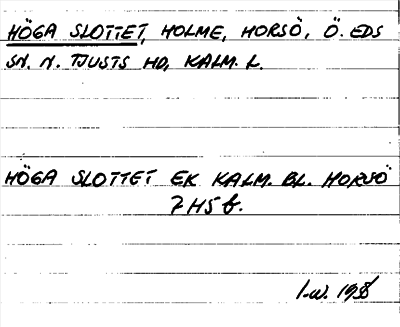 HÖGA SLOTTET, HOLME, HORSÖ, Ö. EDS
SN. N. TJUSTS HD, KALM. L.
HÖGA SLOTTET EK KALM. BL. HORSÖ
7 H5 f.
I.W.